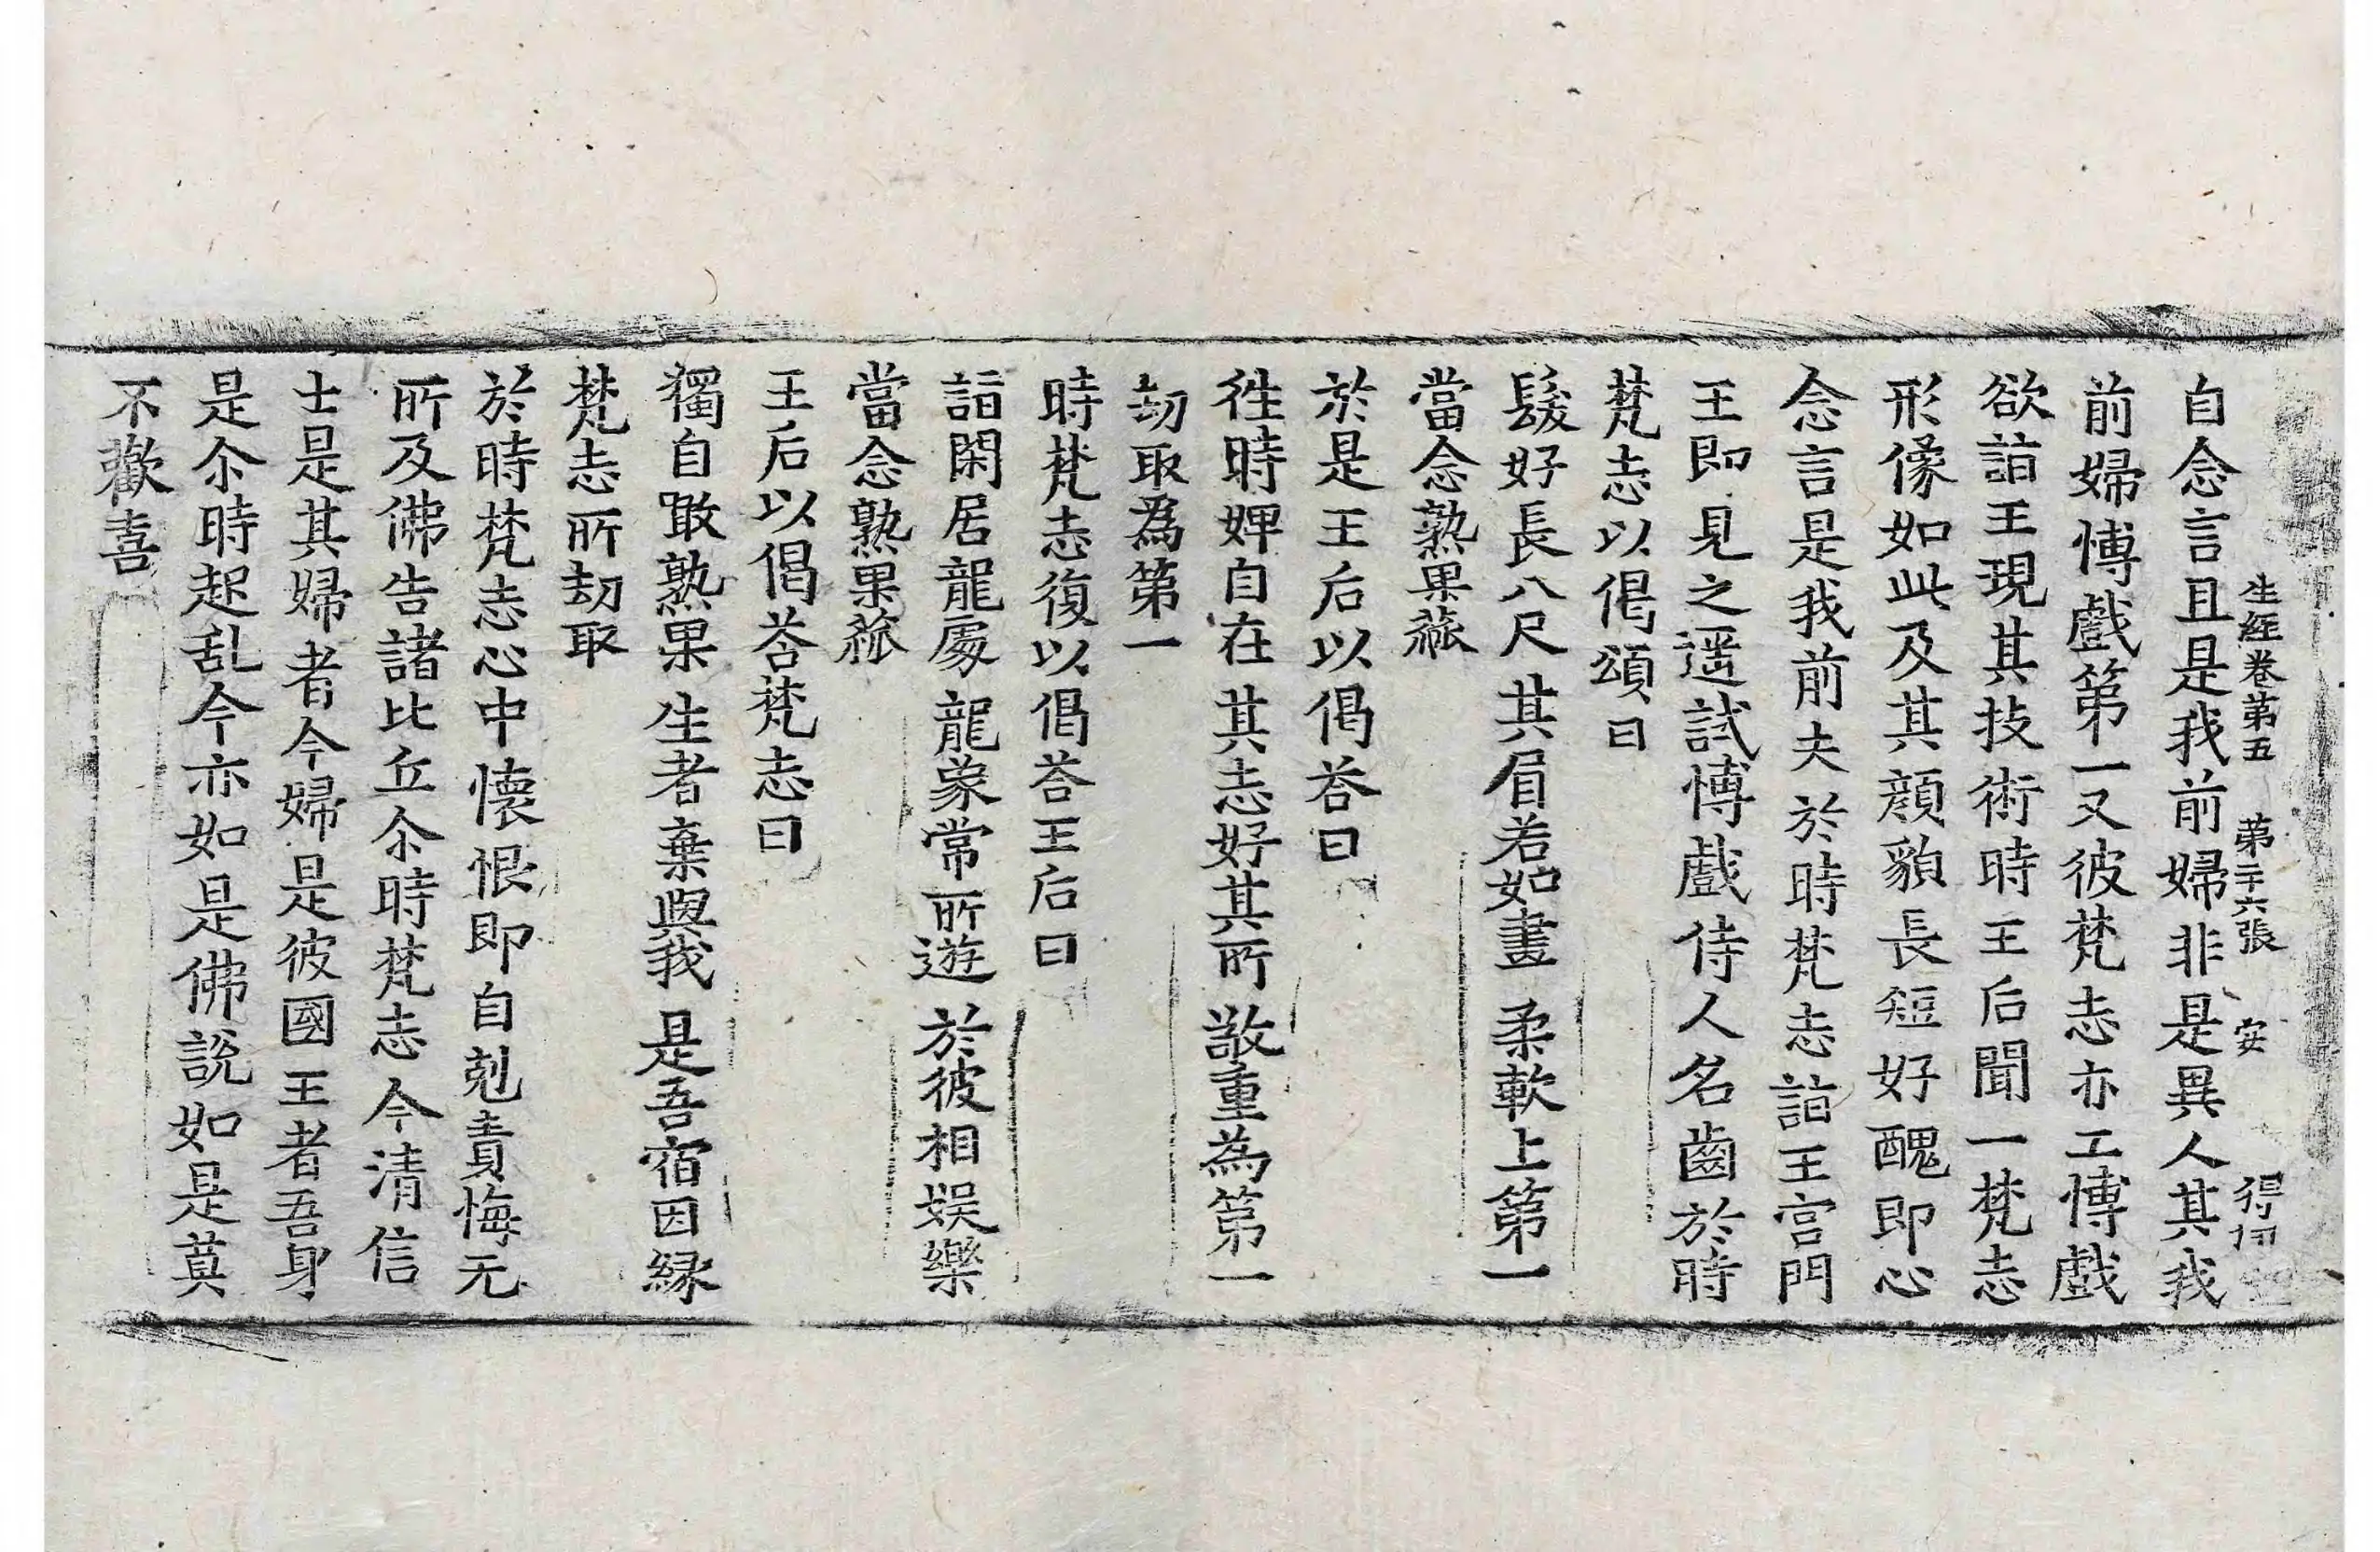 生経卷第五 第二十六張 安 得
自念言且是我前婦非是異人其我
前婦愽戲第一又彼梵志亦工愽戲
欲詣王現其技術時王后聞一梵志
形像如此及其顔貌長短好醜即心
念言是我前夫於時梵志詣王宫門
王即見之遥試愽戲侍人名齒於時
梵志以偈頌曰
髮好長八尺 其眉若如畫 柔軟上第一
當念熟果蓏
於是王后以偈荅曰
徃時婢自在 其志好其所 敬重為第一
刧取為第一
時梵志復以偈荅王后曰
詣閑居龍處 龍象常所遊 於彼相娱樂
當念熟果蓏
王后以偈荅梵志曰
獨自噉熟果 生者棄與我 是吾宿因縁
梵志所刧取
於時梵志心中懐恨即自剋責悔无
所及佛告諸比丘尒時梵志今清信
士是其婦者今婦是彼國王者吾身
是尒時起乱今亦如是佛說如是莫
不歡喜